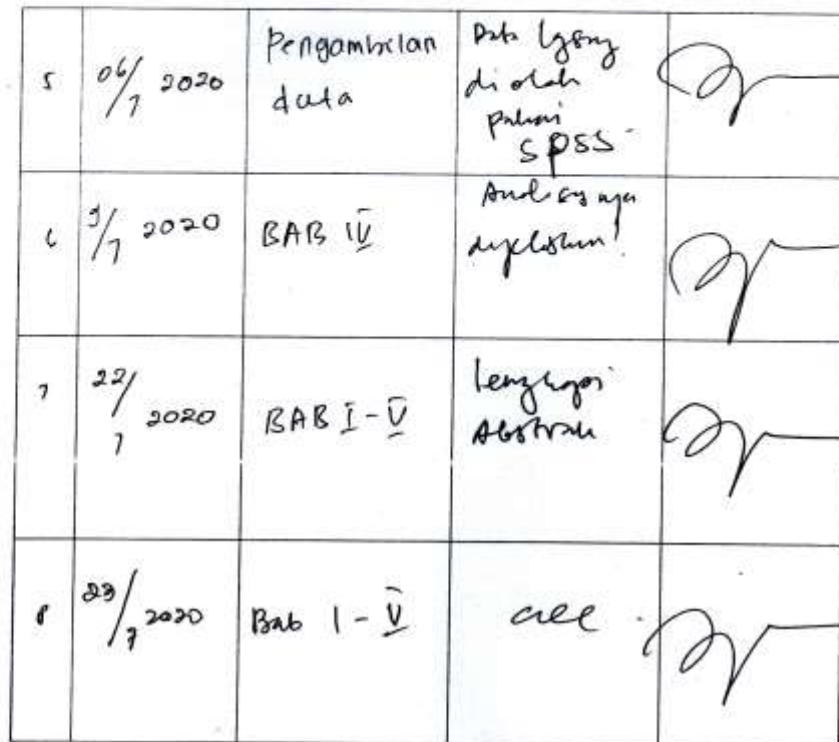 5 06/7 2020 Pengambilan data Data yang di olah pakai SPSS
6 9/7 2020 BAB IV Analisnya diperjelas!
7 22/7 2020 BAB I-V lengkapi Abstrak
8 23/7 2020 Bab I-V acc